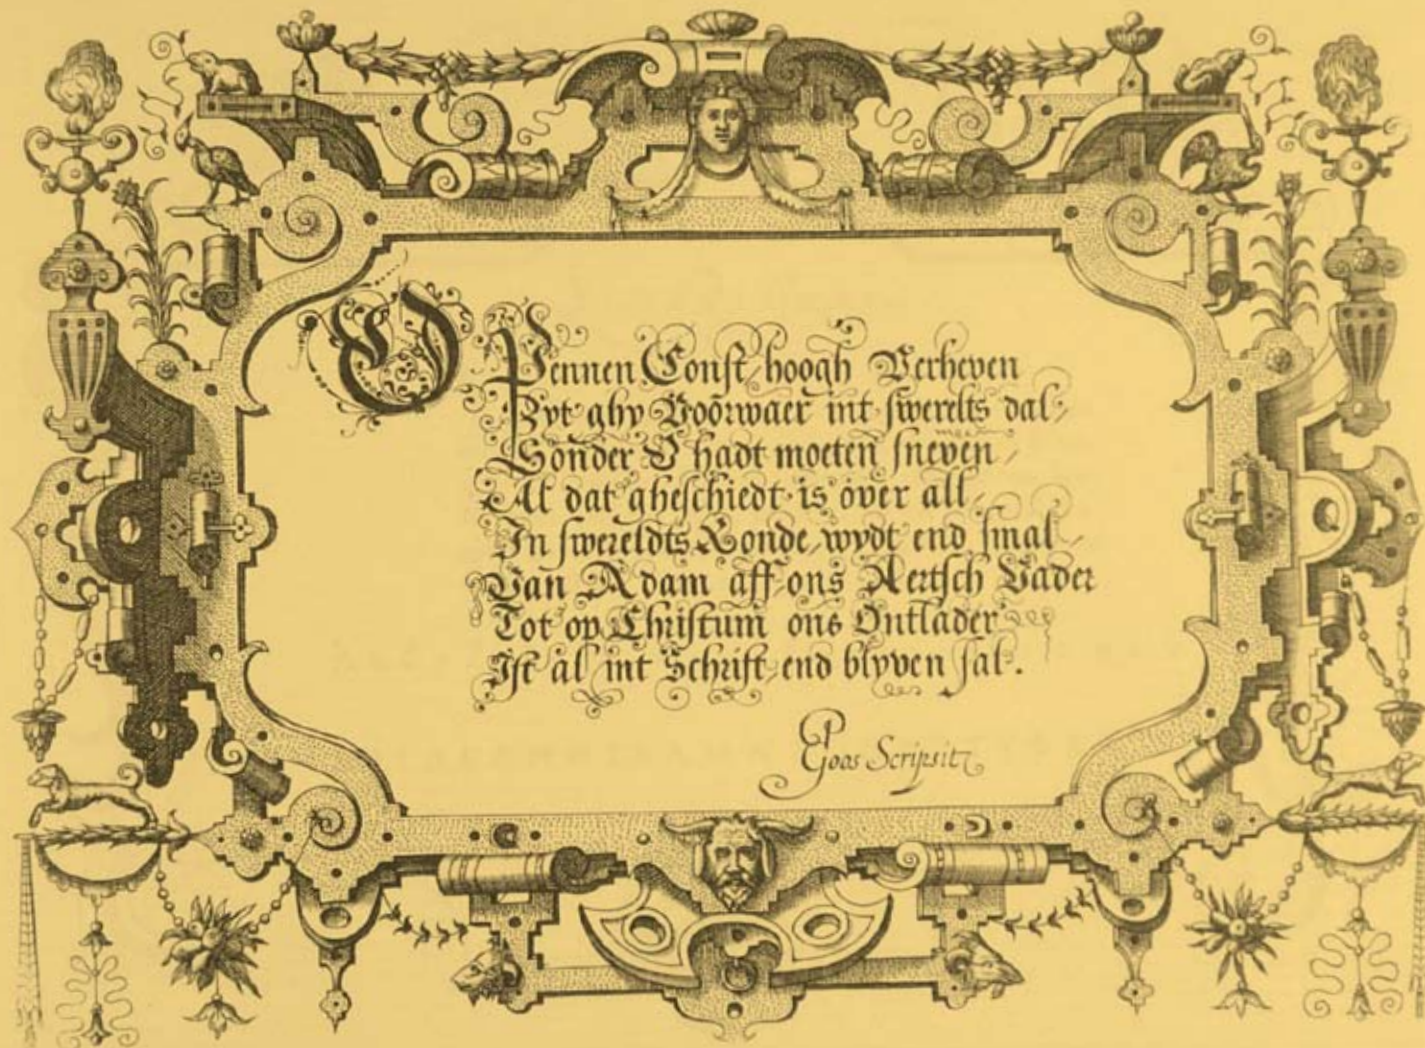 O Pennen Const hoogh Verheven
Zyt ghy Voorwaer int swerelts dal
Sonder V hadt moeten sneven
Al dat gheschiedt is over all
In swereldts Ronde wydt end smal
Van Adam aff ons Aertsch Vader
Tot op Christum ons Ontlader
Ist al int Schrift end blyven sal.
Goos Scripsit